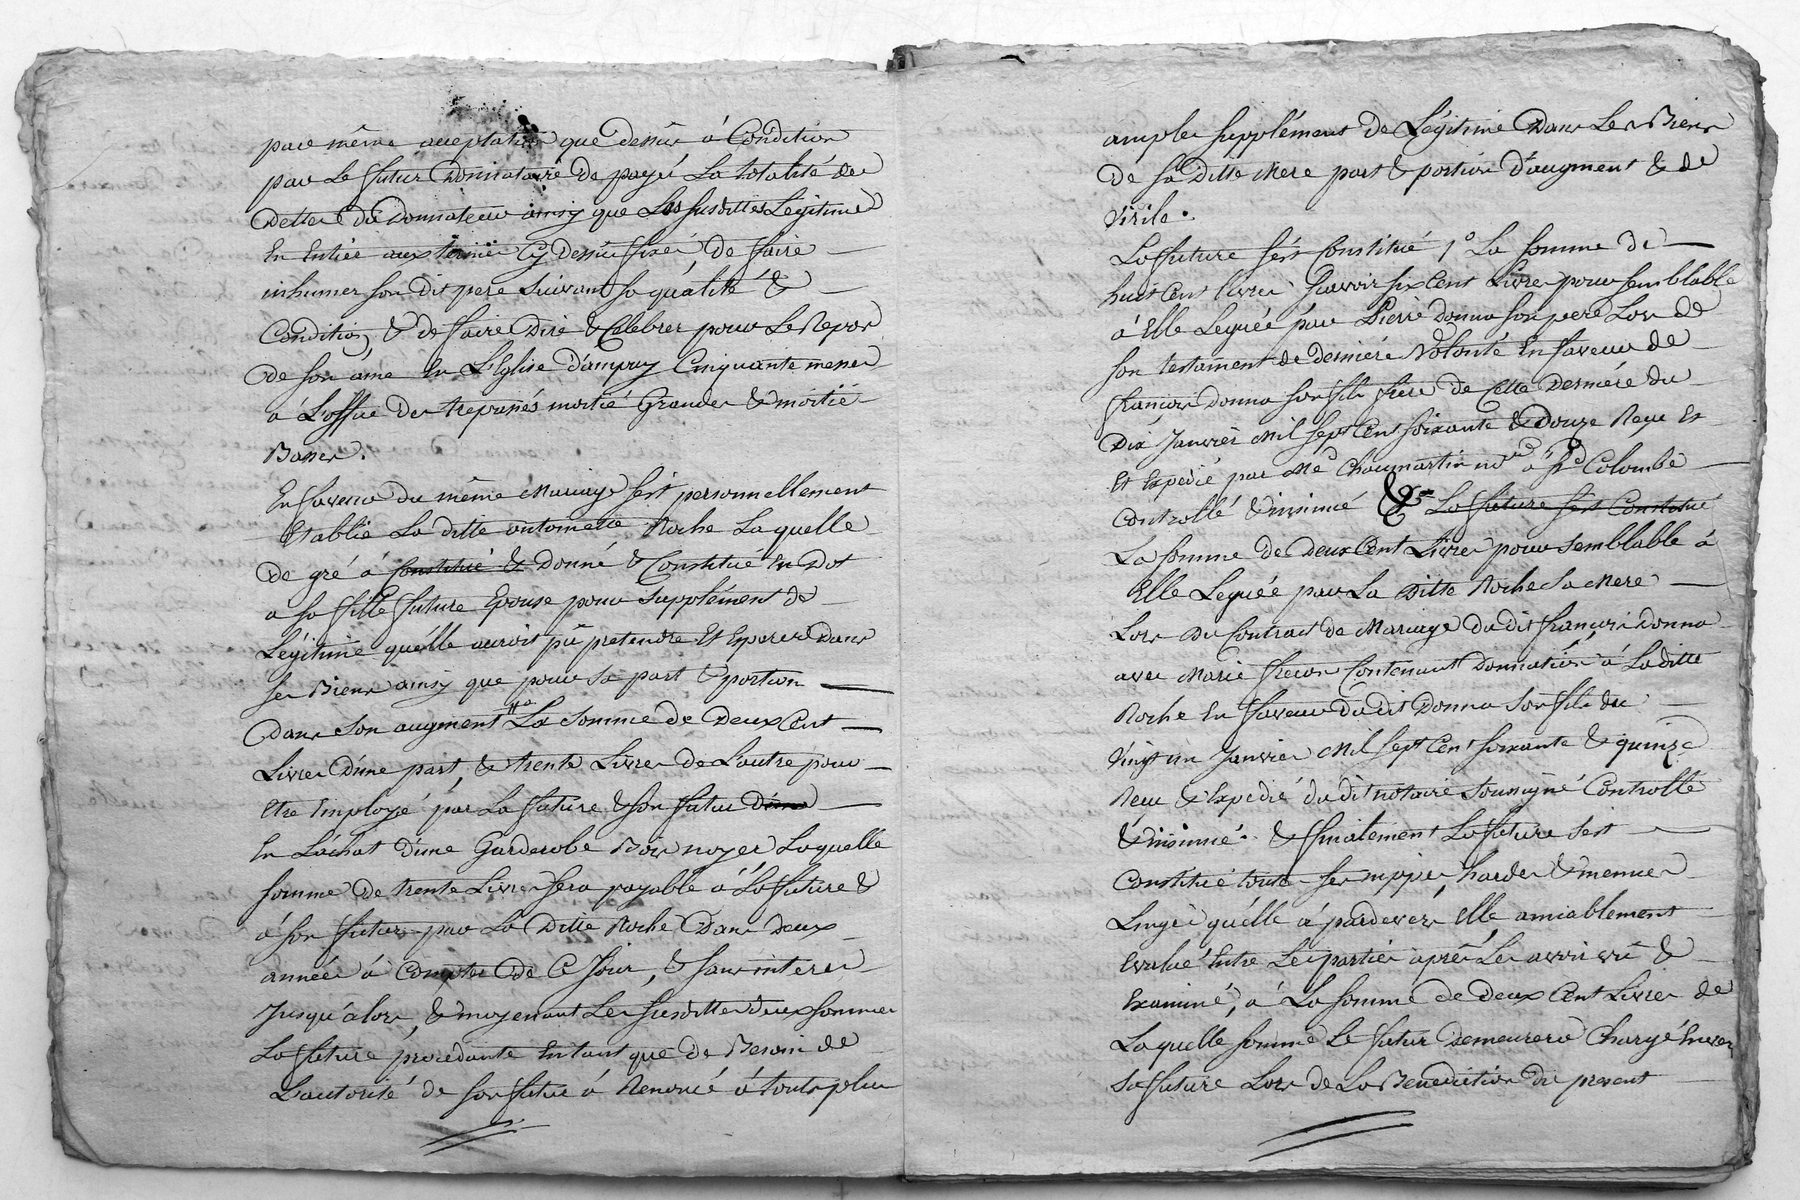 par même acceptation que dessus à Condition
par Le futur Donnataire De payé La totalité des
Dettes du Donnateur ainsy que Les susdittes Légitimes
En Entier aux termes Cy Dessus fixés, De faire
inhumer son Dit pere suivant sa qualité &
Condition, & de faire Dire & Célébrer pour Le Repos
de son âme En L'Eglise D'ampuy Cinquante messes
à L'office Des trepassés moitié Grandes & moitié
Basses.
En faveur du même Mariage s'est personnellement
Etablie La ditte antoinette Roche Laquelle
De gré à Constitué & Donné & Constitue En Dot
a sa fille future Epouse pour supplément de
Légitime qu'elle auroit pû pretendre Et Esperer Dans
ses Biens ainsy que pour sa part & portion
Dans son augment La Somme de Deux Cent
Livres D'une part, & trente Livres de L'autre pour
Etre Employé par La future & son futur D'une
En L'achat D'une Garderobe Bois noyer Laquelle
somme de trente Livres sera payable à La future &
à son futur par La Ditte Roche Dans Deux
années à Compter de Ce Jour, & sans interes
Jusqu'alors, & moyenant Les susdittes deux sommes
La future procedante En tant que de Besoin de
L'autorité de son futur à Renoncé à touts plus
amples supplément de Légitime Dans Les Biens
De sa Ditte Mere part & portion D'augment & de
Virile.
La future s'est Constitué 1° La somme de
huit Cent livres sçavoir six Cent Livres pour semblable
à Elle Leguée par Pierre Donna son pere Lors de
son testament de Derniére Volonté En faveur de
françois Donna son fils frere de Cette Derniére du
Dix Janvier Mil sept Cent soixante & Douze Reçu Et
Et Expedié par Me Chaumartin nore à Ste Colombe
Controllé & insinué & La future s'est Constitué
La somme de Deux Cent Livres pour semblable à
Elle Leguée par La Ditte Roche Sa Mere
Lors Du Contract de Mariage du dit françois Donna
avec Marie frecon Contenant Donnation à La ditte
Roche En faveur Du dit Donna Son fils du
Vingt un Janvier Mil sept Cent soixante & quinze
Reçu & Expedié du dit notaire soussigné Controllé
& insinué. & finalement La future s'est
Constitué toute ses nippes, hardes & menues
Linges qu'elle à pardevers Elle, amiablement
Evalué Entre Les parties après Les avoir vû &
Examiné, à La somme de Deux Cent Livres de
Laquelle somme Le futur demeurera Chargé Envers
Sa future Lors de La Benediction du present